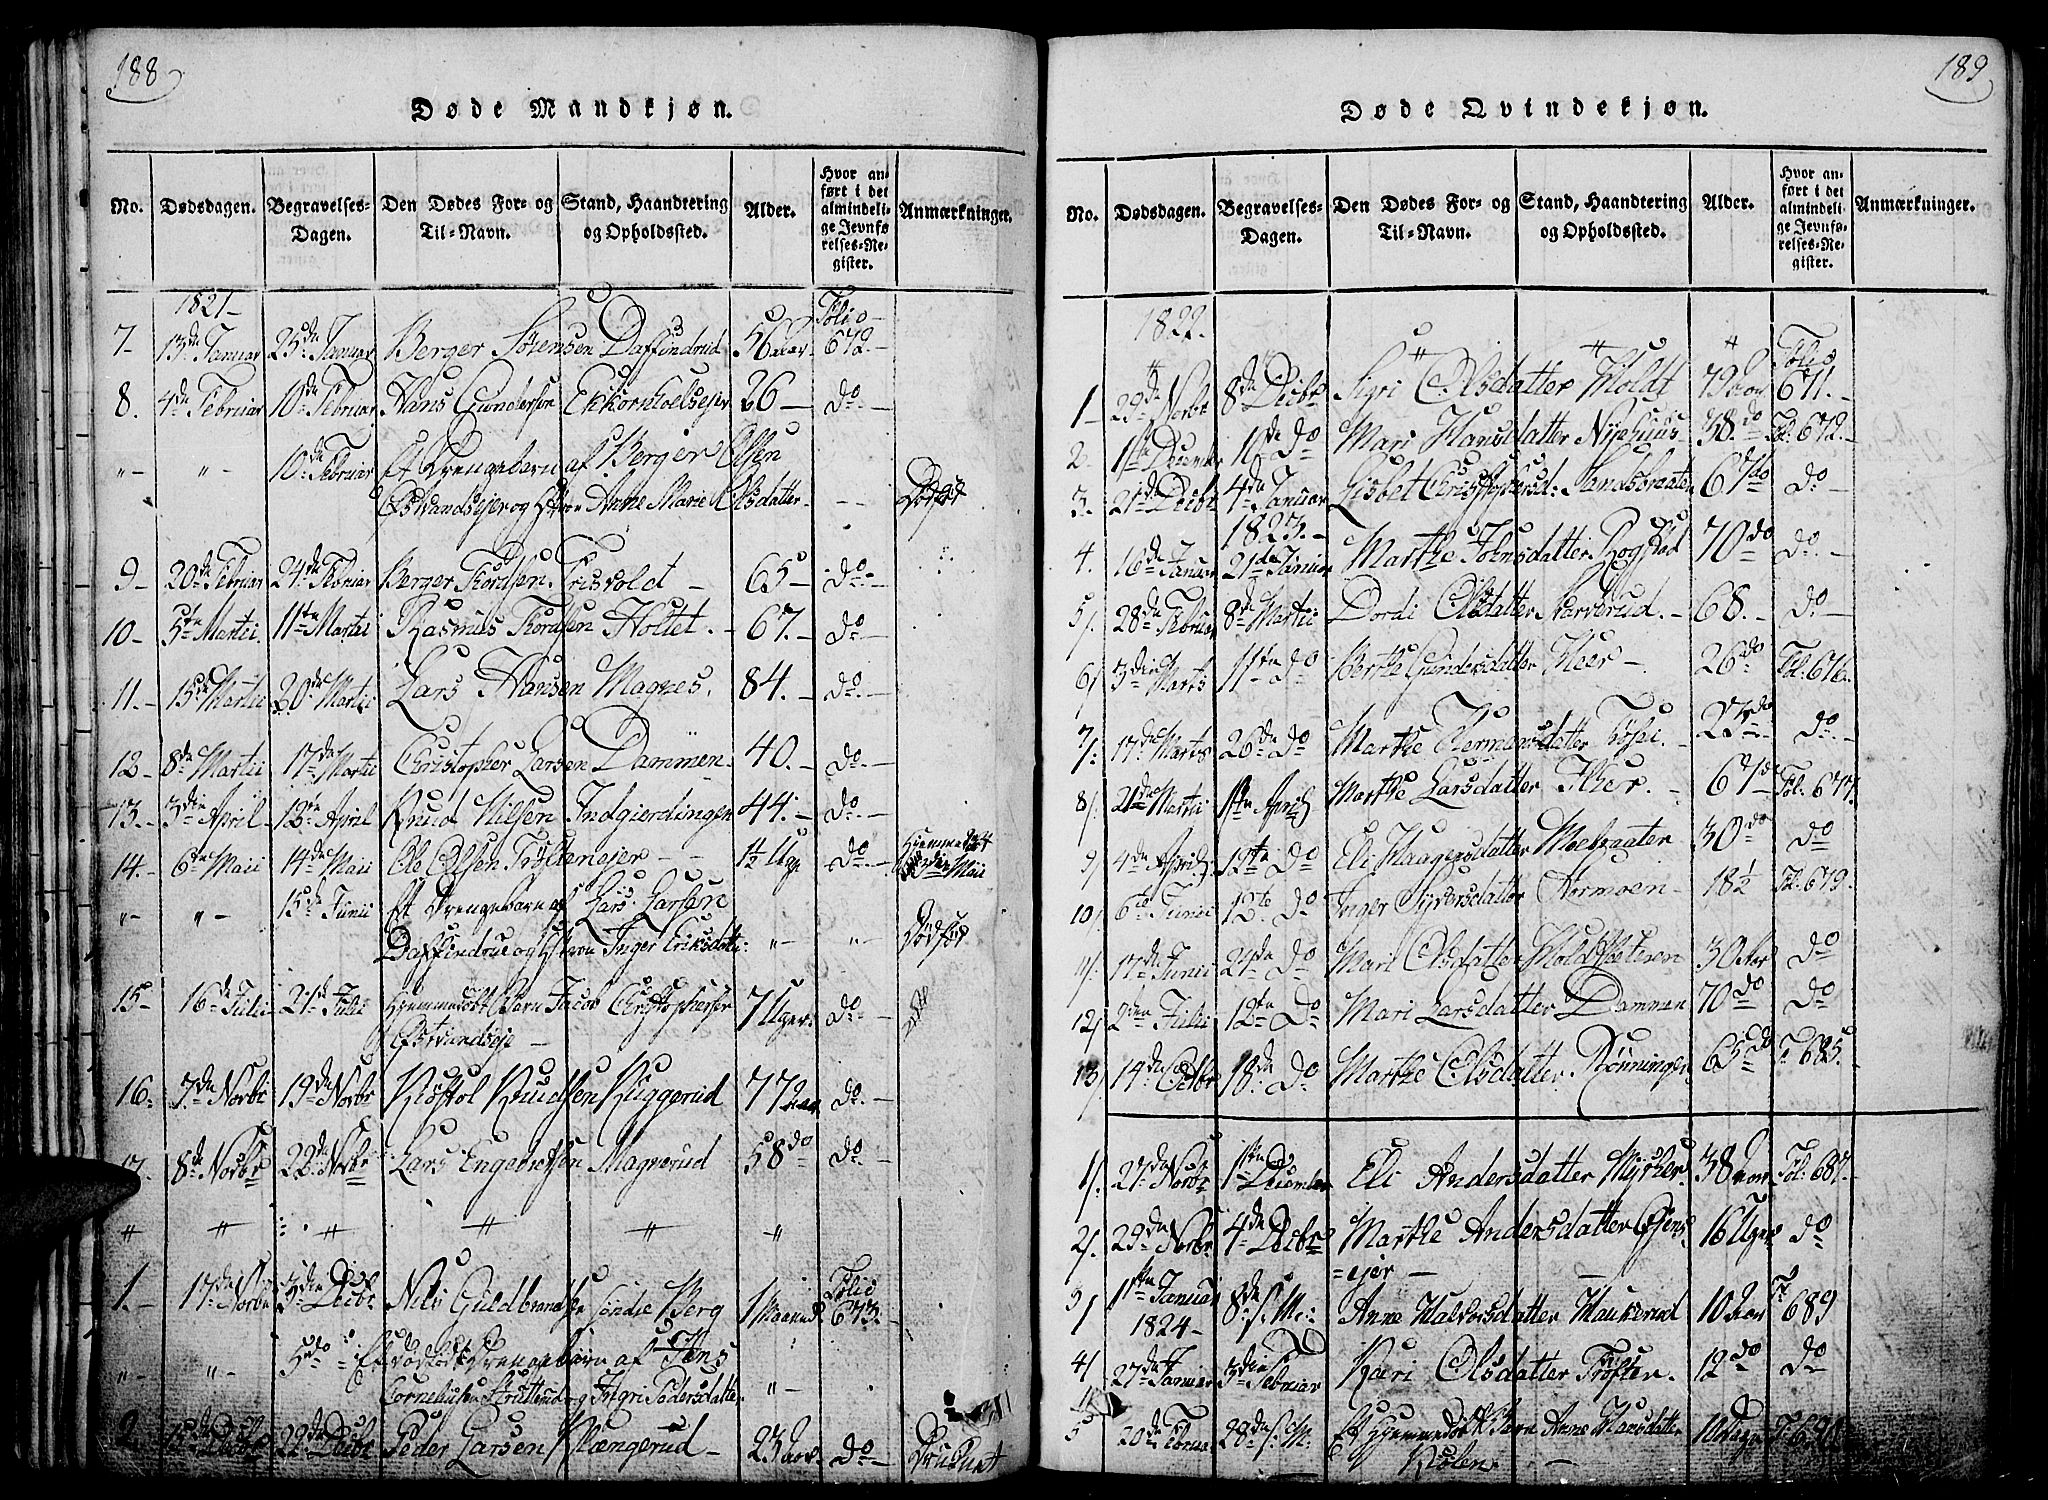 188
Døde Mandkjøn.
No. Dødsdagen. Begravelses-Dagen. Den Dødes For- og Til-Navn. Stand, Haandtering og Opholdssted. Alder. Hvor anført i det almindelige Jevnførelses-Register. Anmærkninger.
1821 Folio
7 13de Januar 25de Januar Berger Sörensen Daffindrud 56 Aar 672.
8. 4de Februar 10de Februar Hans Gundersen Ekkornholsejer 26 do
" " 10de Februar Et Drengebarn af Berger Olsen
Østvandsejer og Hstroe Anne Marie Olsdatter Dødfødt
9 20de Februar 24de Februar Berger Thordsen Trisvold 65 do
10 5te Martii 11te Martii Rasmus Thordsen Holtet. 67. do
11. 15de Martii 20de Martii Lars Hansen Magnes. 84. do
12 8de Martii 17de Martii Christopher Larsen Dammen 40. do
13. 3die April 12te April Knud Nilsen Indgierdingen 44. do
14. 6te Maii 14de Maii Ole Olsen Tröftenejer 1½ Uge do Hjemmedöbt
3die Maii
" " 15de Junii Et Drengebarn af Lars Larsen
Daffindrud og Hstroe Inger Eriksdatter " " Dödföd
15 16de Julii 21de Julii Hjemmedöbt Barn Jacob Christophersen 7 Uger do
Østvandseje
16. 7de Novbr 19de Novbr Kiöstol Knudsen Kuggerud 77 Aar do
17. 8de Novbr 22de Novbr Lars Engebretsen Magnerud 58 do do
" " " " " "
1. 17de Novbr 3die Decbr Nils Guldbrandsen söndre Berg 1 Maaned Folio 673.
" " 5 do Et dödfödt Drengebarn af Jens
Corneliusen Strutterud og Ingri Pedersdatter "
2. 22de Decbr Peder Larsen Klængerud 23 Aar do Druknet
189
Døde Qvindekjøn.
No. Dødsdagen. Begravelses-Dagen. Den Dødes For- og Til-Navn. Stand, Haandtering og Opholdssted. Alder. Hvor anført i det almindelige Jevnførelses-Register. Anmærkninger.
1822. Folio
1 29de Novbr 8de Decbr Sigri Olsdatter Holdt 79 Aar 671.
2 1ste December 16de do Mari Hansdatter Nyehuus 38. do Fol. 672.
3. 21de Decbr 4de Januar Lisbet Christophersd: Sandsbraaten 67 do do
1823.
4. 16de Januar 21de Januar Marthe Johnsdatter Rogstad 70 do do
5/. 28de Februar 8de Martii Dordi Olsdatter Narverud. 68. do
6/ 3die Marts 11te do Berthe Gundersdatter Heer 26 do Fol. 676.
7/. 17de Marts 26de do Marthe Hermansdatter Töfte. 23 do do
8/. 21de Martii 1ste April Marthe Larsdatter Heer. 67 do Fol. 677.
9/ 4de April 12te do Eli Haagensdatter Moebraaten 30 do do
10/. 6te Junii 12te do Inger Syversdatter Hormoen 18½ Fol. 679.
11/. 17de Junii 24de do Mari Olsdatter 30 Aar do
12/ 2den Julii 12te do Mari Larsdatter Dammen 70 do do
13/ 14de Octbr 18de do Marthe Olsdatter Rönningen 65 do F. 685.
1/. 27de Novbr 1ste December Eli Andersdatter Myrher 38 Aar Fol. 687.
2/. 29de Novbr 4de Decbr Marthe Andersdatter Ejens 16 Uger do
=ejer
3/ 1ste Januar 8de s.M: Anne Halvorsdatter Haukerud 10 Aar F. 689
1824
4/ 27de Januar 3die Februar Kari Olsdatter Tröften. 12 do do
5 20de Februar 28de s.M. Et Hjemmedöbt Barn Anne Hansdatter 10 Dage F. 690
Kolen